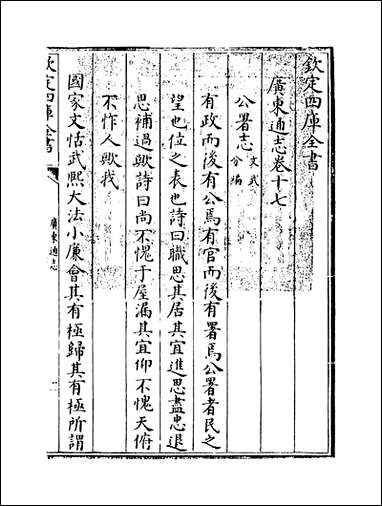 欽定四庫全書
廣東通志卷十七
公署志 文武分編
有政而後有公焉有官而後有署焉公署者民之
望也位之表也詩曰職思其居其宜進思盡忠退
思補過歟詩曰尚不愧于屋漏其宜仰不愧天俯
不怍人歟我
國家文恬武熙大法小廉會其有極歸其有極所謂
欽定四庫全書
廣東通志